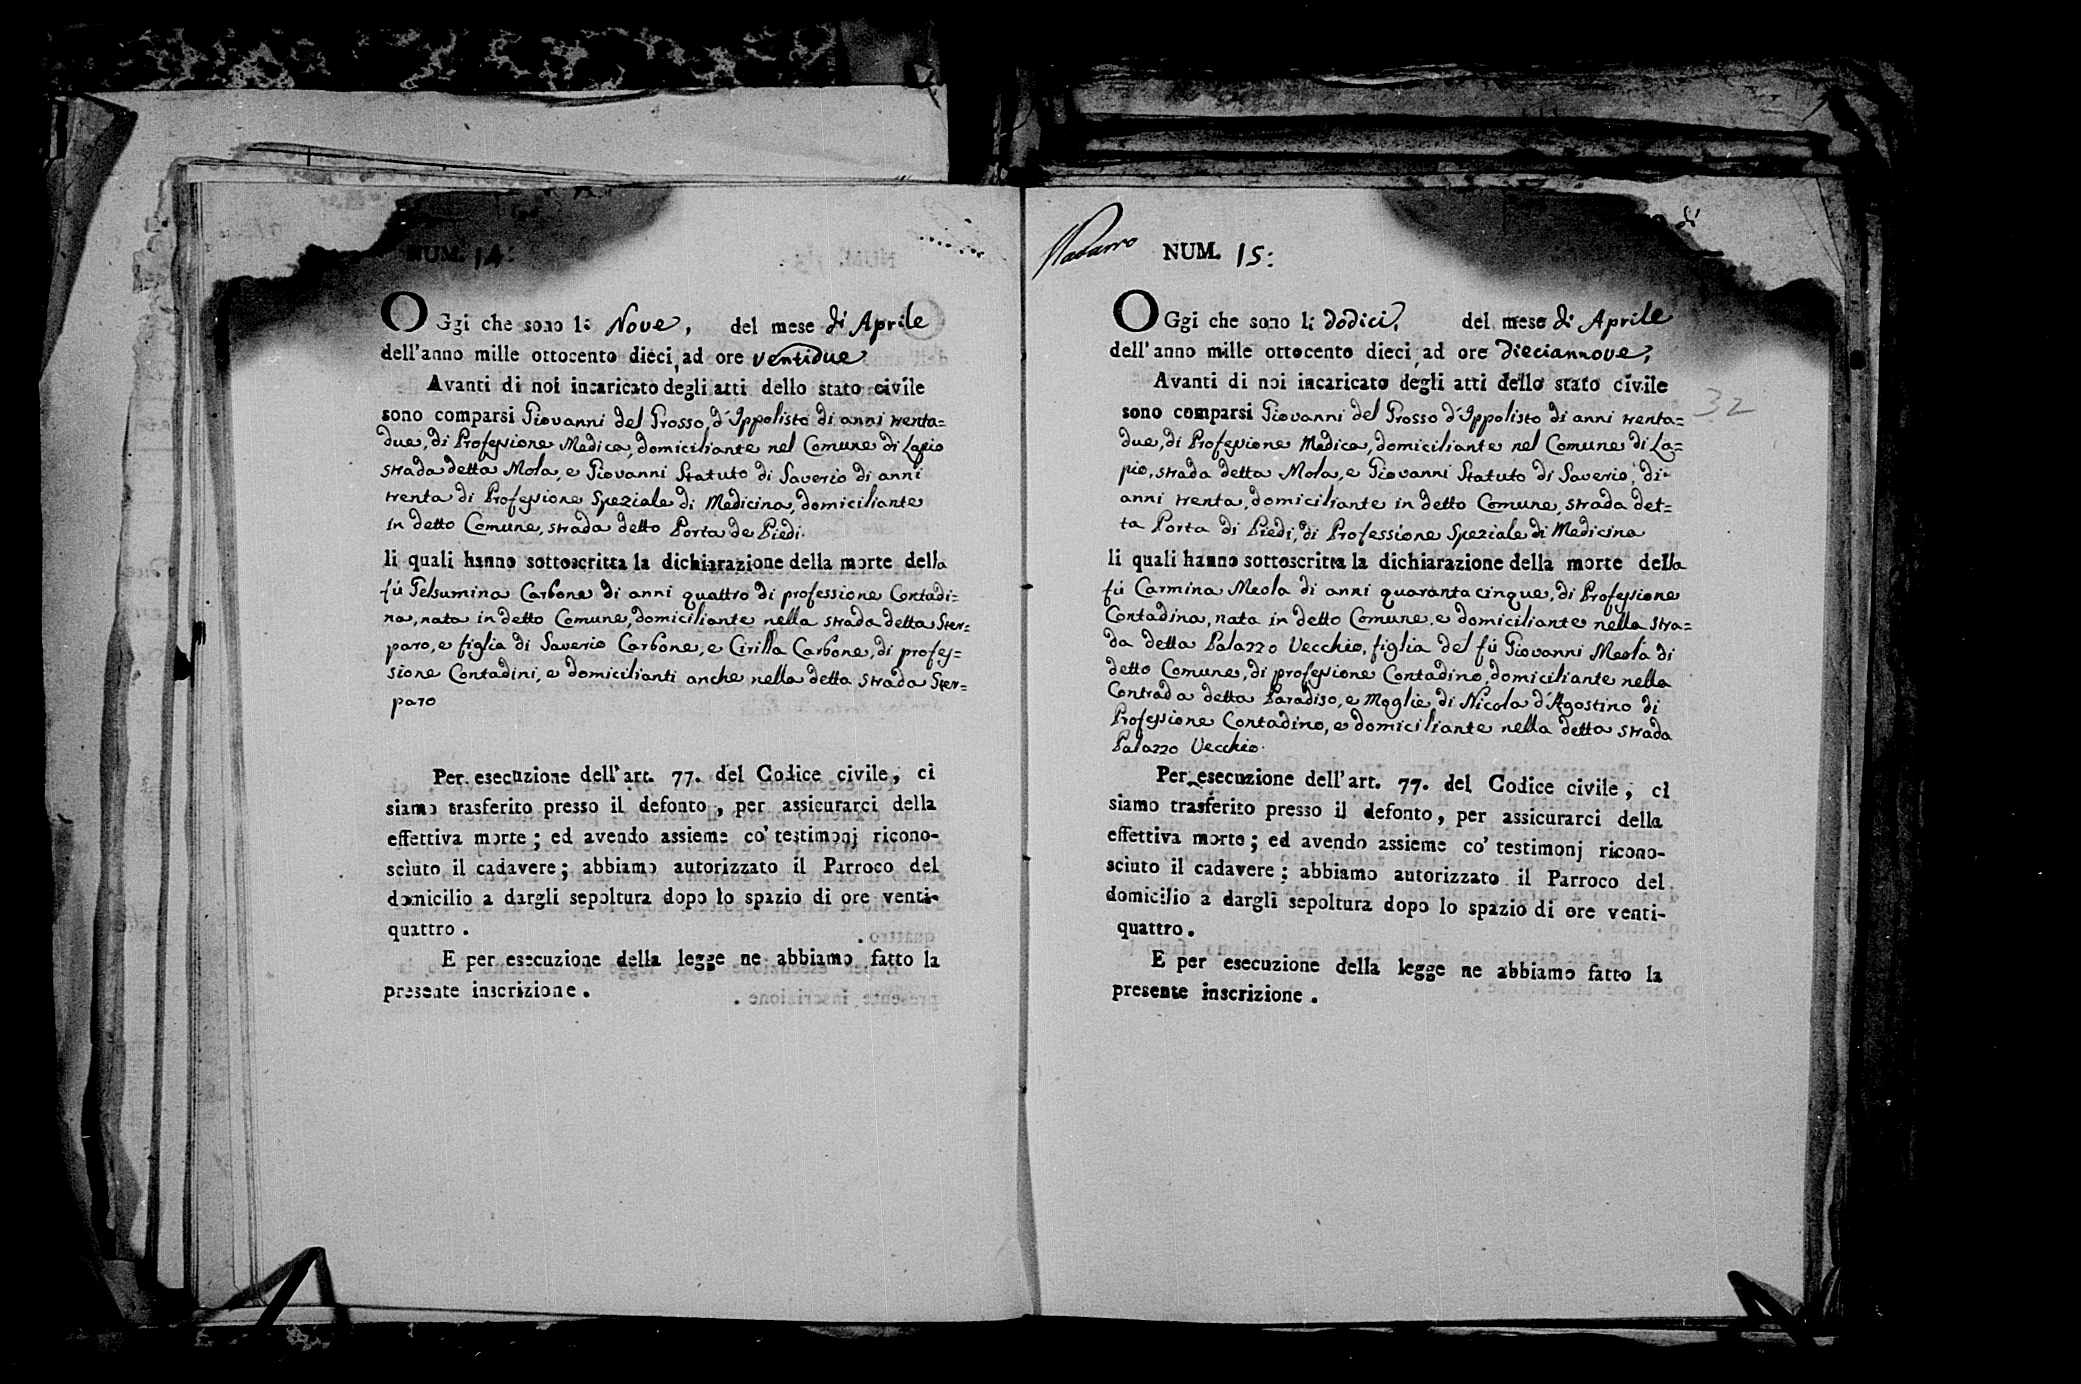 NUM. 14:
OGgi che sono li Nove, del mese di Aprile
dell'anno mille ottocento dieci, ad ore ventidue
Avanti di noi incaricato degli atti dello stato civile
sono comparsi Giovanni del Grosso d'Ippolisto di anni trenta=
due, di Professione Medica, domiciliante nel Comune di Lapio
strada detta Mola, e Giovanni Statuto di Saverio di anni
trenta di Professione Speziale di Medicina, domiciliante
in detto Comune, strada detto Porta de Piedi.
li quali hanno sottoscritta la dichiarazione della morte della
fù Gelsumina Carbone di anni quattro di professione Contadi=
na, nata in detto Comune, domiciliante nella strada detta Ster=
paro, e figlia di Saverio Carbone, e Cirilla Carbone, di profes=
sione Contadini, e domicilianti anche nella detta strada Ster=
paro
Per esecuzione dell'art. 77. del Codice civile, ci
siamo trasferito presso il defonto, per assicurarci della
effettiva morte; ed avendo assieme co' testimonj ricono-
sciuto il cadavere; abbiamo autorizzato il Parroco del
domicilio a dargli sepoltura dopo lo spazio di ore venti-
quattro.
E per esecuzione della legge ne abbiamo fatto la
presente inscrizione.
di
NUM. 15:
OGgi che sono li dodici, del mese di Aprile
dell'anno mille ottocento dieci, ad ore dieciannove,
Avanti di noi incaricato degli atti dello stato civile
32
sono comparsi Giovanni del Grosso d'Ippolisto di anni trenta=
due, di Professione Medica, domiciliante nel Comune di La=
pio, strada detta Mola, e Giovanni Statuto di Saverio, di
anni trenta, domiciliante in detto Comune, strada det=
ta Porta di Piedi, di Professione Speziale di Medicina
li quali hanno sottoscritta la dichiarazione della morte della
fù Carmina Meola di anni quaranta cinque, di Professione
Contadina, nata in detto Comune, e domiciliante nella stra=
da detta Palazzo Vecchio, figlia del fù Giovanni Meola di
detto Comune, di professione Contadino, domiciliante nella
Contrada detta Paradiso, e Moglie di Nicola d'Agostino di
Professione Contadino, e domiciliante nella detta strada
Palazzo Vecchio.
Per esecuzione dell'art. 77. del Codice civile, ci
siamo trasferito presso il defonto, per assicurarci della
effettiva morte; ed avendo assieme co' testimonj ricono-
sciuto il cadavere; abbiamo autorizzato il Parroco del
domicilio a dargli sepoltura dopo lo spazio di ore venti-
quattro.
E per esecuzione della legge ne abbiamo fatto la
presente inscrizione.